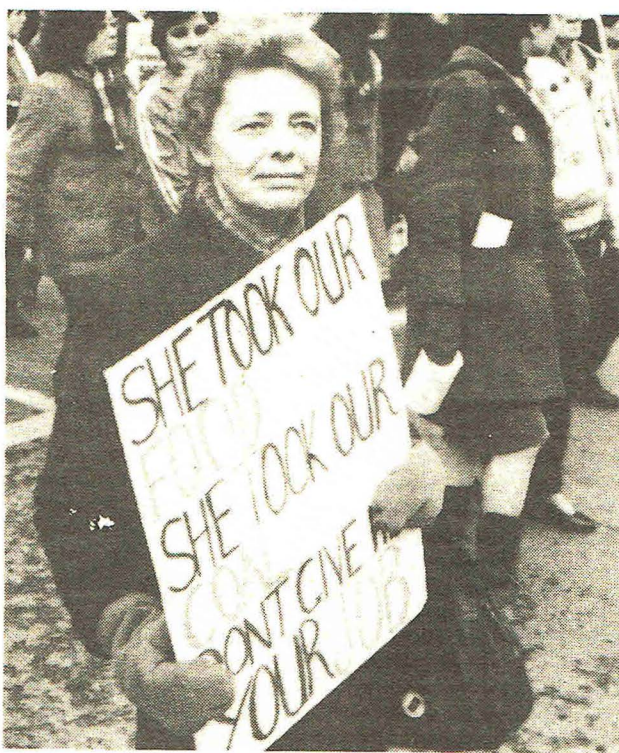 SHE TOOK OUR
FOOD
SHE TOOK OUR
DONT GIVE
YOUR JOB